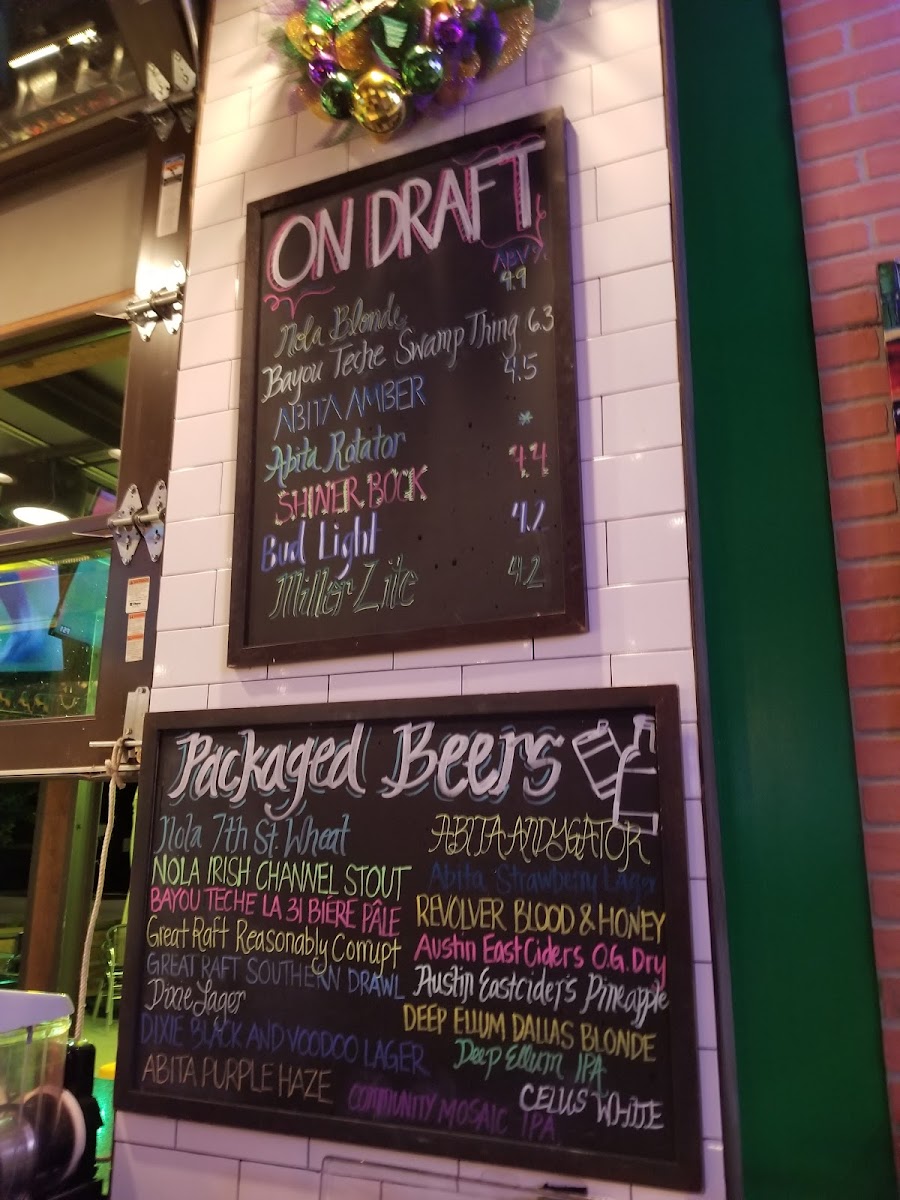 ON DRAFT
ABV%
Nola Blonde 4.9
Bayou Teche Swamp Thing 6.3
ABITA AMBER 4.5
Abita Rotator *
SHINER BOCK 4.4
Bud Light 4.2
Miller Lite 4.2
Packaged Beers
Nola 7th St. Wheat
NOLA IRISH CHANNEL STOUT
BAYOU TECHE LA 31 BIÉRE PÂLE
Great Raft Reasonably Corrupt
GREAT RAFT SOUTHERN DRAWL
Dixie Lager
DIXIE BLACK AND VOODOO LAGER
ABITA PURPLE HAZE
ABITA ANDYGATOR
Abita Strawberry Lager
REVOLVER BLOOD & HONEY
Austin EastCiders O.G. Dry
Austin Eastciders Pineapple
DEEP ELLUM DALLAS BLONDE
Deep Ellum IPA
CELUS WHITE
COMMUNITY MOSAIC IPA